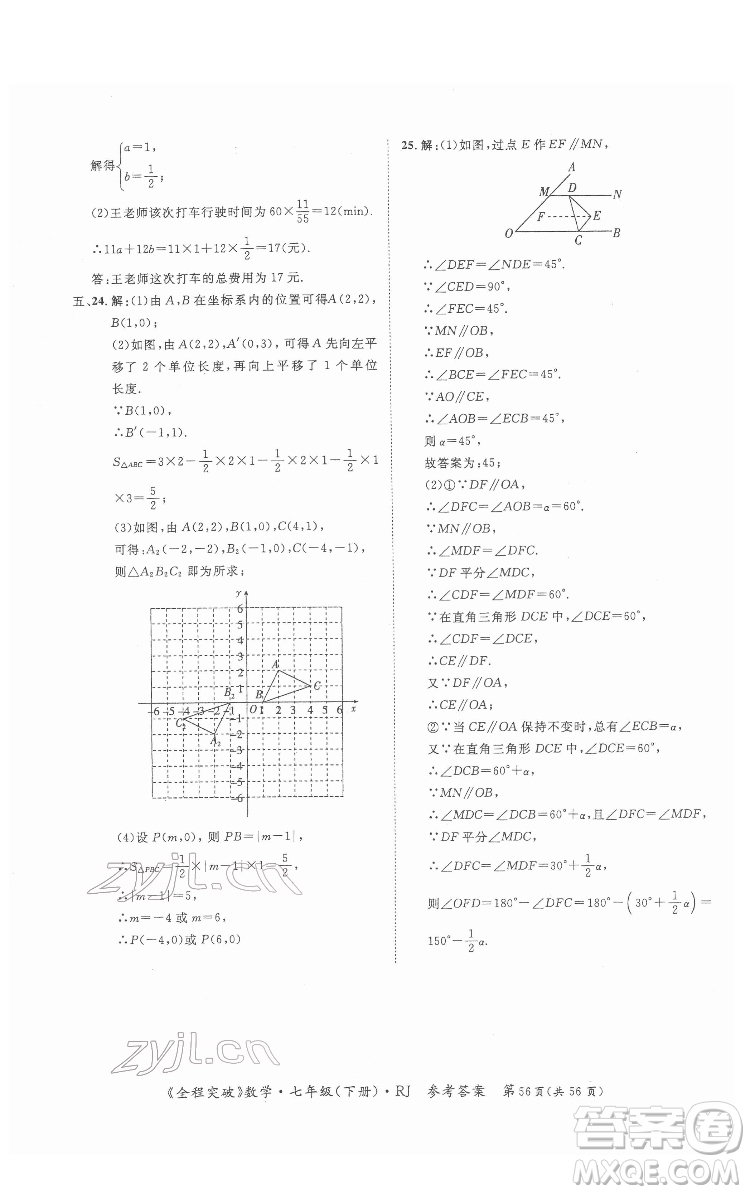 解得{a=1,
b=1/2;
(2)王老师该次打车行驶时间为60×11/55=12(min).
∴11a+12b=11×1+12×1/2=17(元).
答:王老师这次打车的总费用为 17 元.
五、24. 解:(1)由 A,B 在坐标系内的位置可得A(2,2),
B(1,0);
(2)如图,A(2,2),A′(0,3),可得 A 先向左平
移了 2 个单位长度,再向上平移了 1 个单位
长度.
∵B(1,0),
∴B′(-1,1).
S△ABC=3×2-1/2×2×1-1/2×2×1-1/2×1
×3=5/2;
(3)如图,由 A(2,2),B(1,0),C(4,1),
可得:A₂(-2,-2),B₂(-1,0),C₂(-4,-1),
则△A₂B₂C₂ 即为所求;
y
6
5
4
3
2
1
A
B
C
B₂
C₂
A₂
-6 -5 -4 -3 -2 -1 O 1 2 3 4 5 6 x
-1
-2
-3
-4
-5
-6
(4)设 P(m,0),则 PB=|m-1|,
∴S△PBC=1/2×|m-1|×1=5/2,
∴|m-1|=5,
∴m=-4 或 m=6,
∴P(-4,0)或 P(6,0)
25. 解:(1)如图,过点 E 作 EF∥MN,
A
M D N
F E
O C B
∴∠DEF=∠NDE=45°.
∵∠CED=90°,
∴∠FEC=45°.
∵MN∥OB,
∴EF∥OB,
∴∠BCE=∠FEC=45°.
∵AO∥CE,
∴∠AOB=∠ECB=45°,
则 α=45°,
故答案为:45;
(2)①∵DF∥OA,
∴∠DFC=∠AOB=α=60°.
∵MN∥OB,
∴∠MDF=∠DFC=60°.
∵DF 平分∠MDC,
∴∠CDF=∠MDF=60°.
∵在直角三角形 DCE 中,∠DCE=60°,
∴CE∥DF.
又∵DF∥OA,
∴CE∥OA;
②∵当 CE∥OA 保持不变时,总有∠ECB=α,
又∵在直角三角形 DCE 中,∠DCE=60°,
∴∠DCB=60°+α.
∵MN∥OB,
∴∠MDC=∠DCB=60°+α,且∠DFC=∠MDF,
∵DF 平分∠MDC,
∴∠DFC=∠MDF=30°+1/2α,
则∠OFD=180°-∠DFC=180°-(30°+1/2α)=
150°-1/2α.
zyjl.cn
zyjl.cn
《全程突破》数学·七年级(下册)·RJ 参考答案 第56页(共 56 页)
答案圈
MXQE.COM